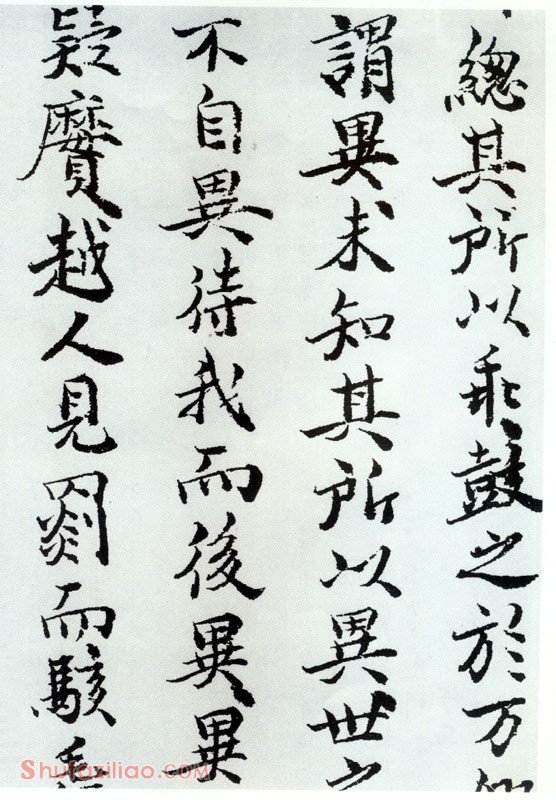 總其所以乖鼓之於万
謂異未知其所以異世之
不自異待我而後異異
疑黂越人見罽而駭
Shufaziliao.COM